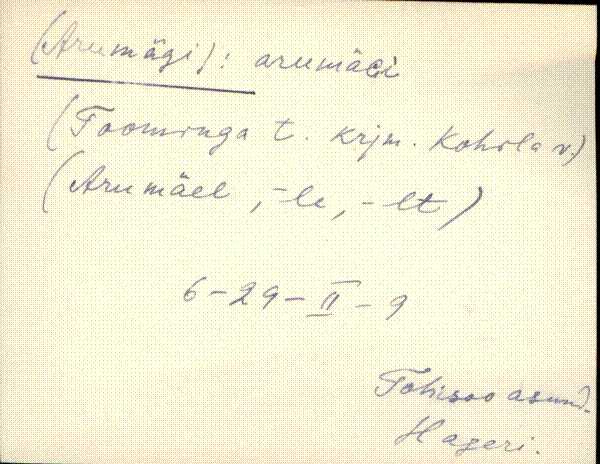 (Arumägi): arumäCi
(Toominga t. krjm. Kohila v.)
(Arumäel, -le, -lt)
6-29-II-9
Tohisoo asund.
Hageri.